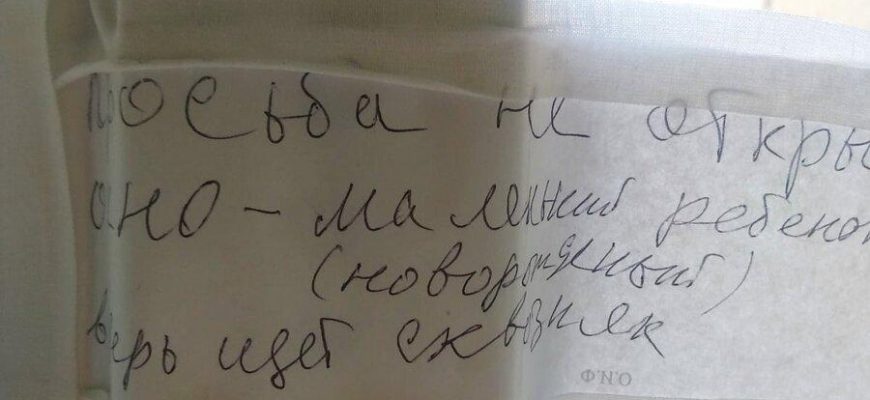 осьба не откры
но - маленький ребенок
(новорожденный)
верь идет сквозняк
Ф.И.О